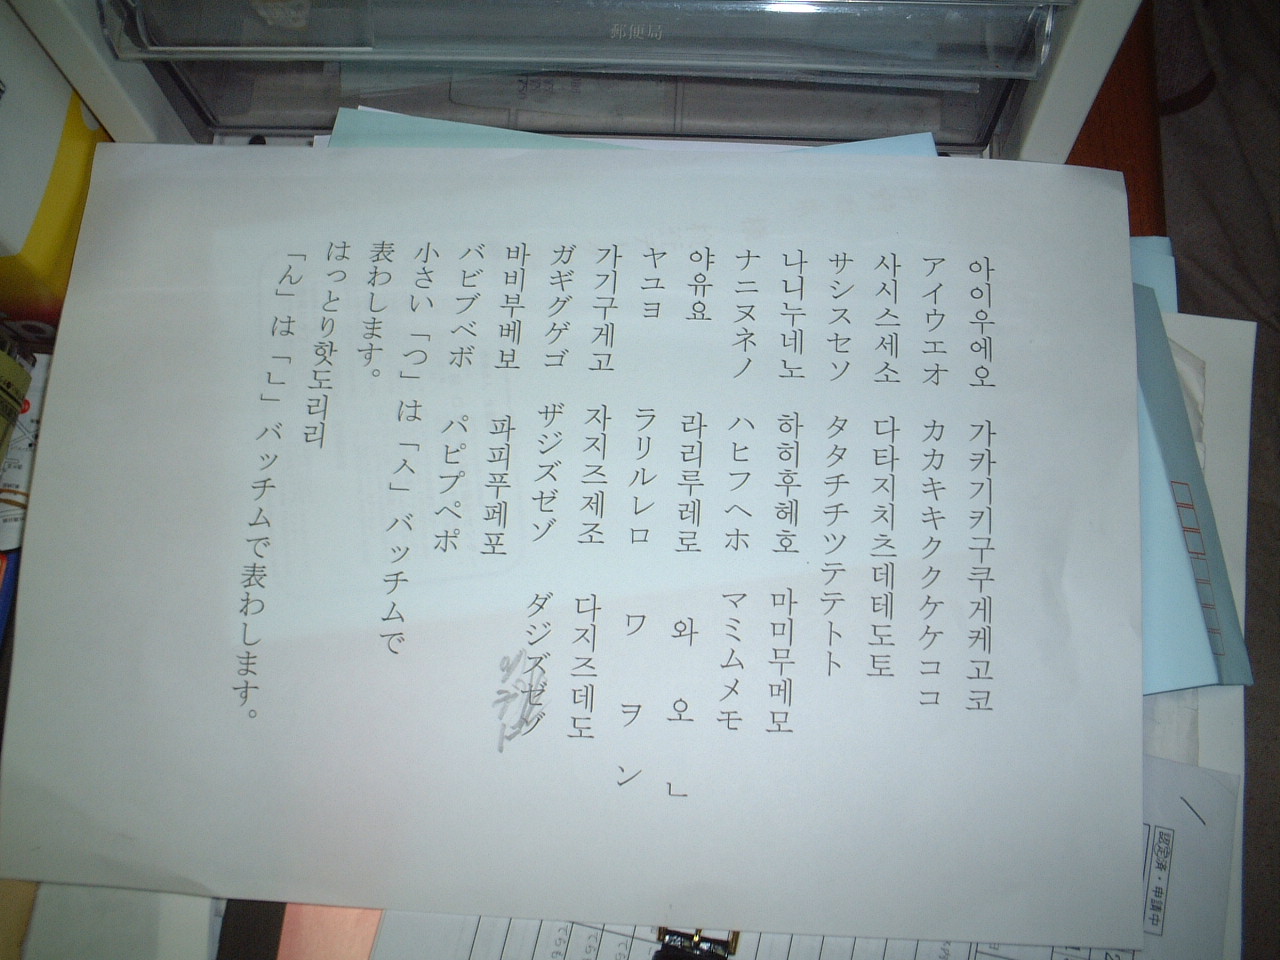 郵便局
아이우에오 가카기키구쿠게케고코
アイウエオ カカキキククケケココ
사시스세소 다타지치츠데테도토
サシスセソ タタチチツテテトト
나니누네노 하히후헤호 마미무메모
ナニヌネノ ハヒフヘホ マミムメモ
야유요 라리루레로 와 오 ㄴ
ヤユヨ ラリルレロ ワ ヲ ン
가기구게고 자지즈제조 다지즈데도
ガギグゲゴ ザジズゼゾ ダジズゼゾ
바비부베보 파피푸페포
バビブベボ パピプペポ
小さい「つ」は「ㅅ」バッチムで
表わします。
はっとりり핫도리리
「ん」は「ㄴ」バッチムで表わします。
認定済・申請中